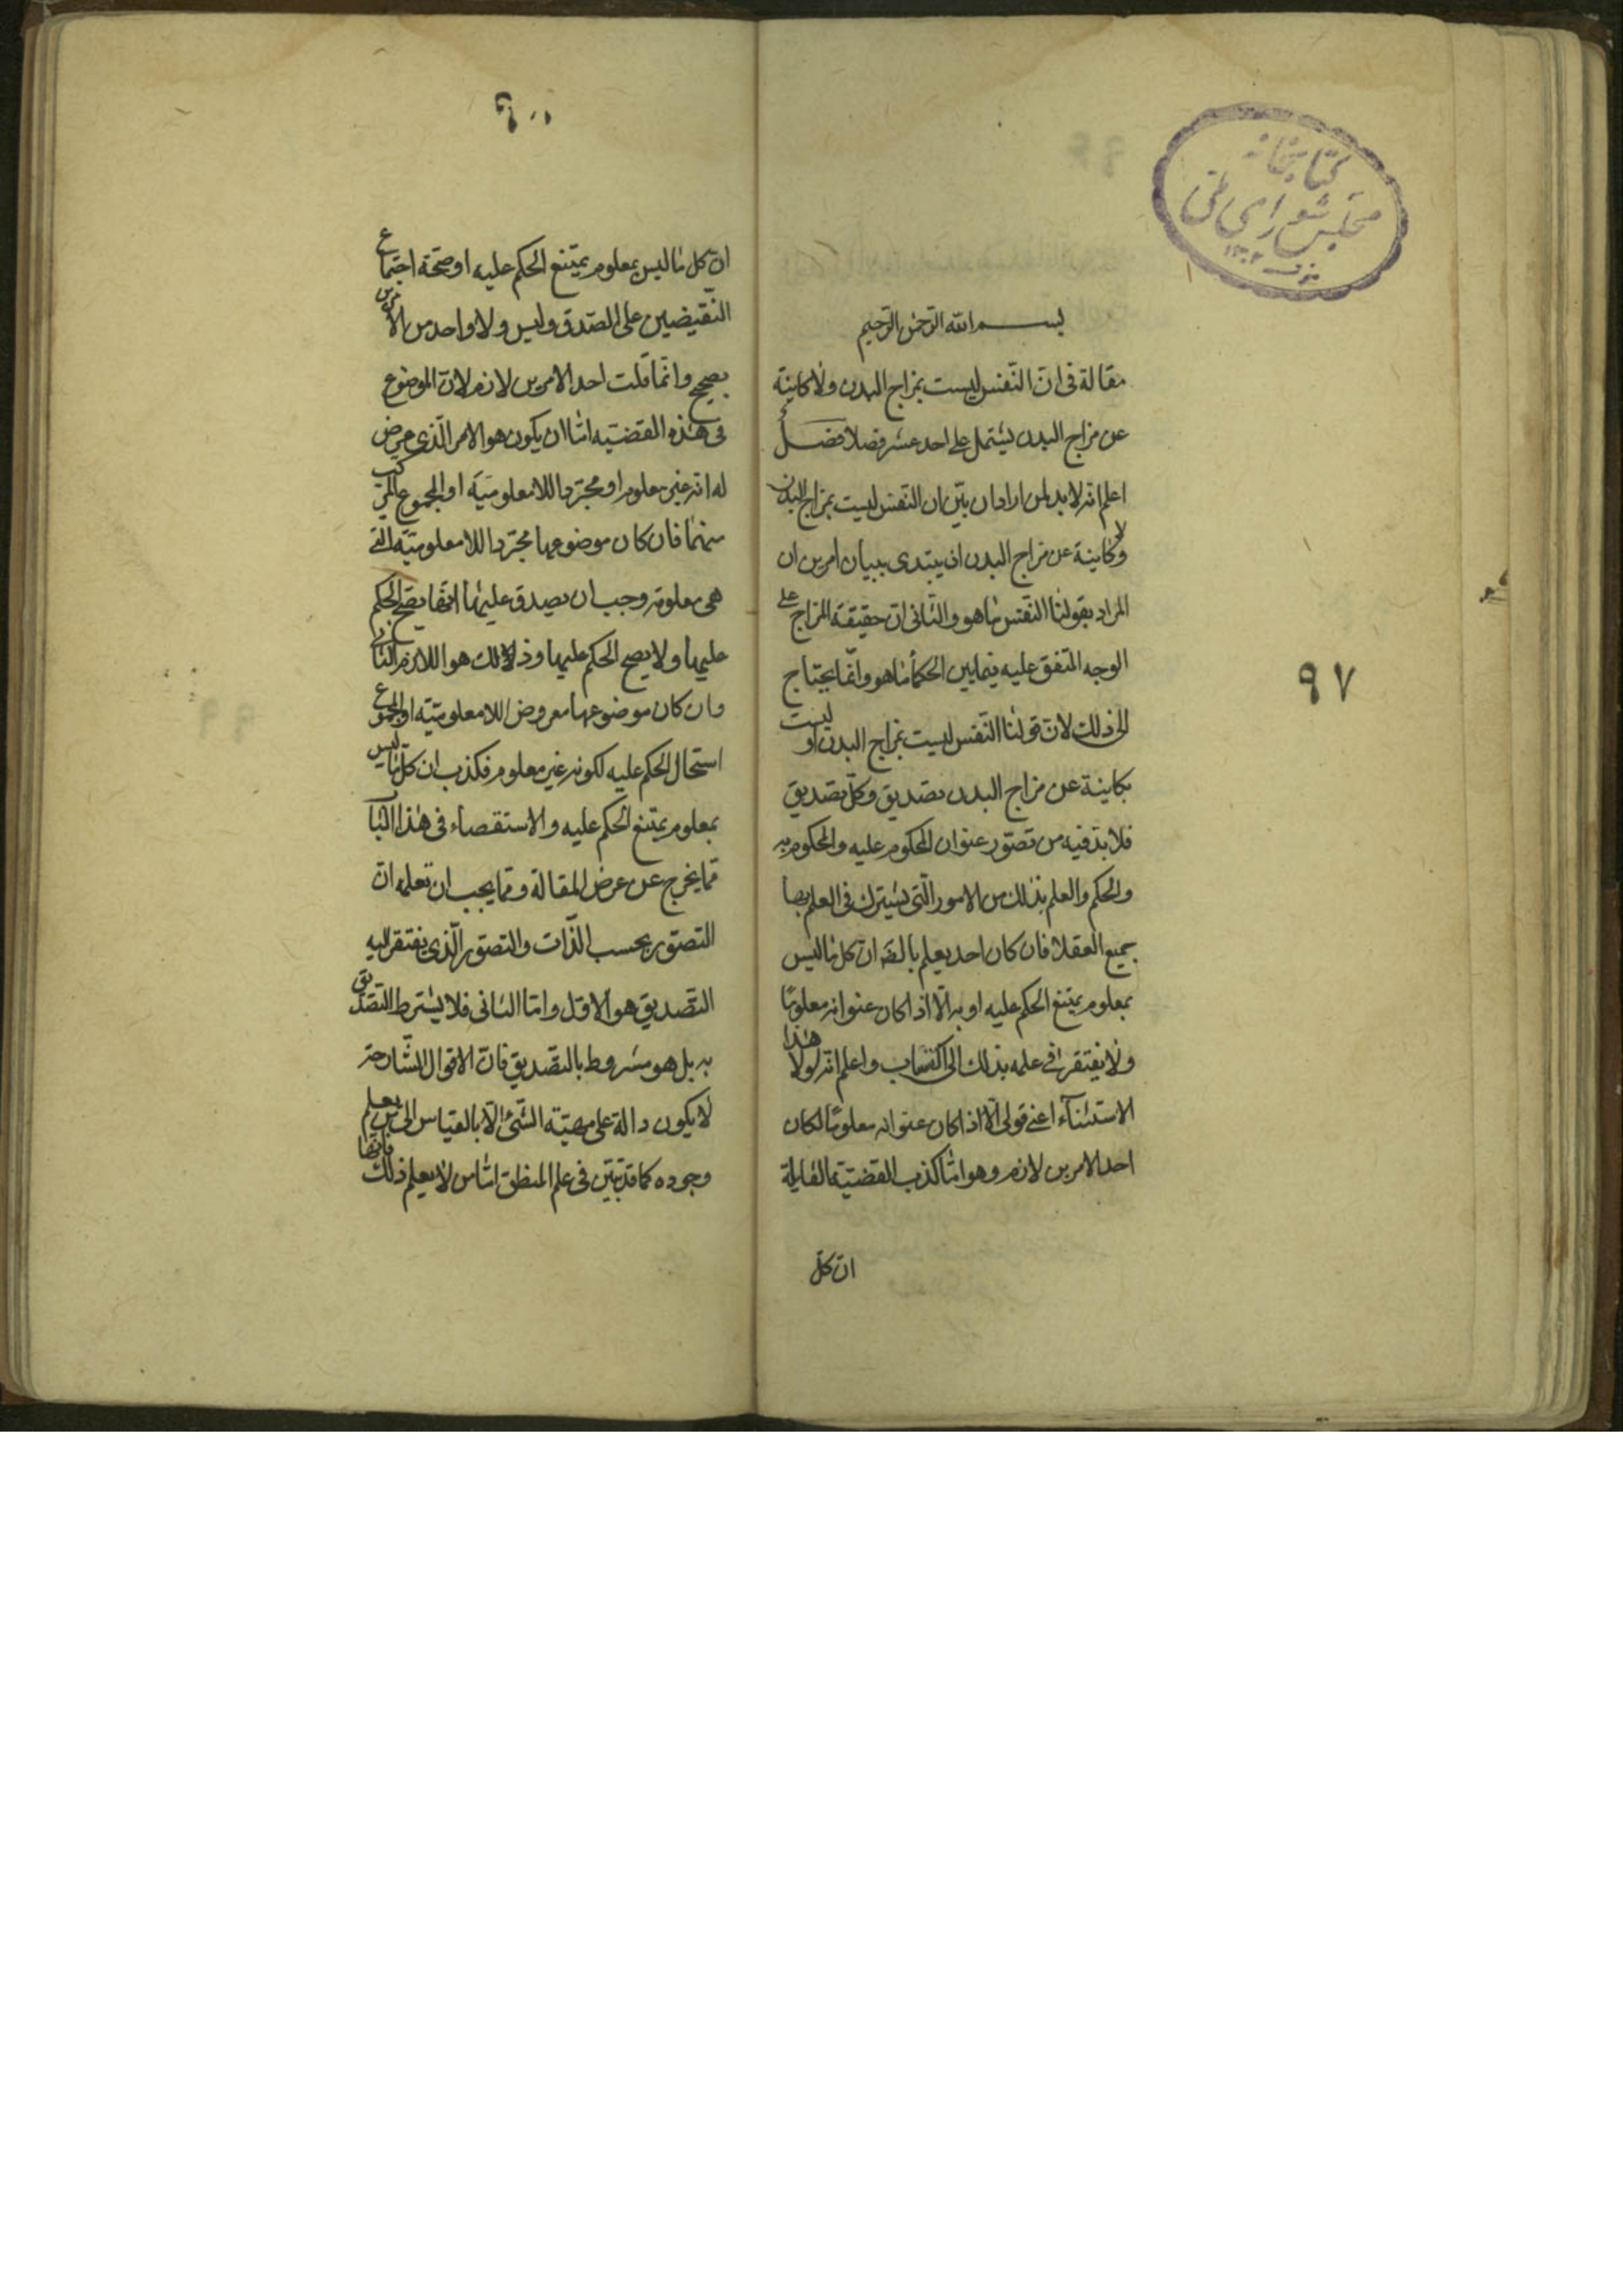 كتابخانه
مجلس شورای ملی
٩٧
بسم الله الرحمن الرحيم
مقالة فی انّ النّفس ليست بمزاج البدن ولا كاينة
عن مزاج البدن يشتمل على احد عشر فصلا فصل
اعلم انّه لا بد لمن اراد ان يبيّن ان النّفس ليست بمزاج البدن
ولا كاينة عن مزاج البدن ان يبتدی ببيان امرين ان
المراد بقولنا النّفس ما هو والثّانی انّ حقيقة المزاج على
الوجه المتّفق عليه فيما بين الحكمأ ما هو وانّما يحتاج
الى ذلك لانّ قولنا النّفس ليست بمزاج البدن او ليست
بكاينة عن مزاج البدن تصديق وكلّ تصديق
فلا بدّ فيه من تصوّر عنوان المحكوم عليه والمحكوم به
والحكم والعلم بذلك من الامور الّتی يشترك فی العلم بها
جميع العقلا فان كان احد يعلم بالضّه ان كل ما ليس
بمعلوم يمتنع الحكم عليه او به الّا اذا كان عنوانه معلومًا
ولا يفتقر فی علمه بذلك الى اكتساب واعلم انّه لولا هذا
الاستثنآء اعنی قولی الّا اذا كان عنوانه معلومًا لكان
احد الامرين لازم وهو امّا كذب القضيّة القايلة
ان كلّ
١٠٠
انّ كل ما ليس بمعلوم يمتنع الحكم عليه او صحّة اجتماع
النّقيضين على الصّدق وليس ولا واحد من الامرين
بصحيح وانّما قلت احد الامرين لازم لانّ الموضوع
فی هذه القضيّه امّا ان يكون هو الامر الّذی عرض
له انّه غير معلوم او مجرّد اللا معلوميّه او المجموع المركب
منهما فان كان موضوعها مجرّد اللا معلوميّه التی
هی معلومة وجب ان يصدق عليها انّها يصحّ الحكم
عليها ولا يصح الحكم عليها وذلك هو اللازم الثانی
وان كان موضوعها معروض اللا معلوميّه او المجموع
استحال الحكم عليه لكونه غير معلوم فكذب ان كلّ ما ليس
بمعلوم يمتنع الحكم عليه والاستقصاء فی هذا الباب
ممّا يخرج عن غرض المقالة وممّا يجب ان تعلمه انّ
التصوّر بحسب الذّات والتصوّر الّذی يفتقر اليه
التّصديق هو الاوّل وامّا الثانی فلا يشترط التصديق
به بل هو مشروط بالتصديق فانّ الاقوال الشّارحة
لا يكون دالة على مهيّة الشّیء الّا بالقياس الى من يعلم
وجوده كما قد تبيّن فی علم المنطق امّا من لا يعلم ذلك فانّها